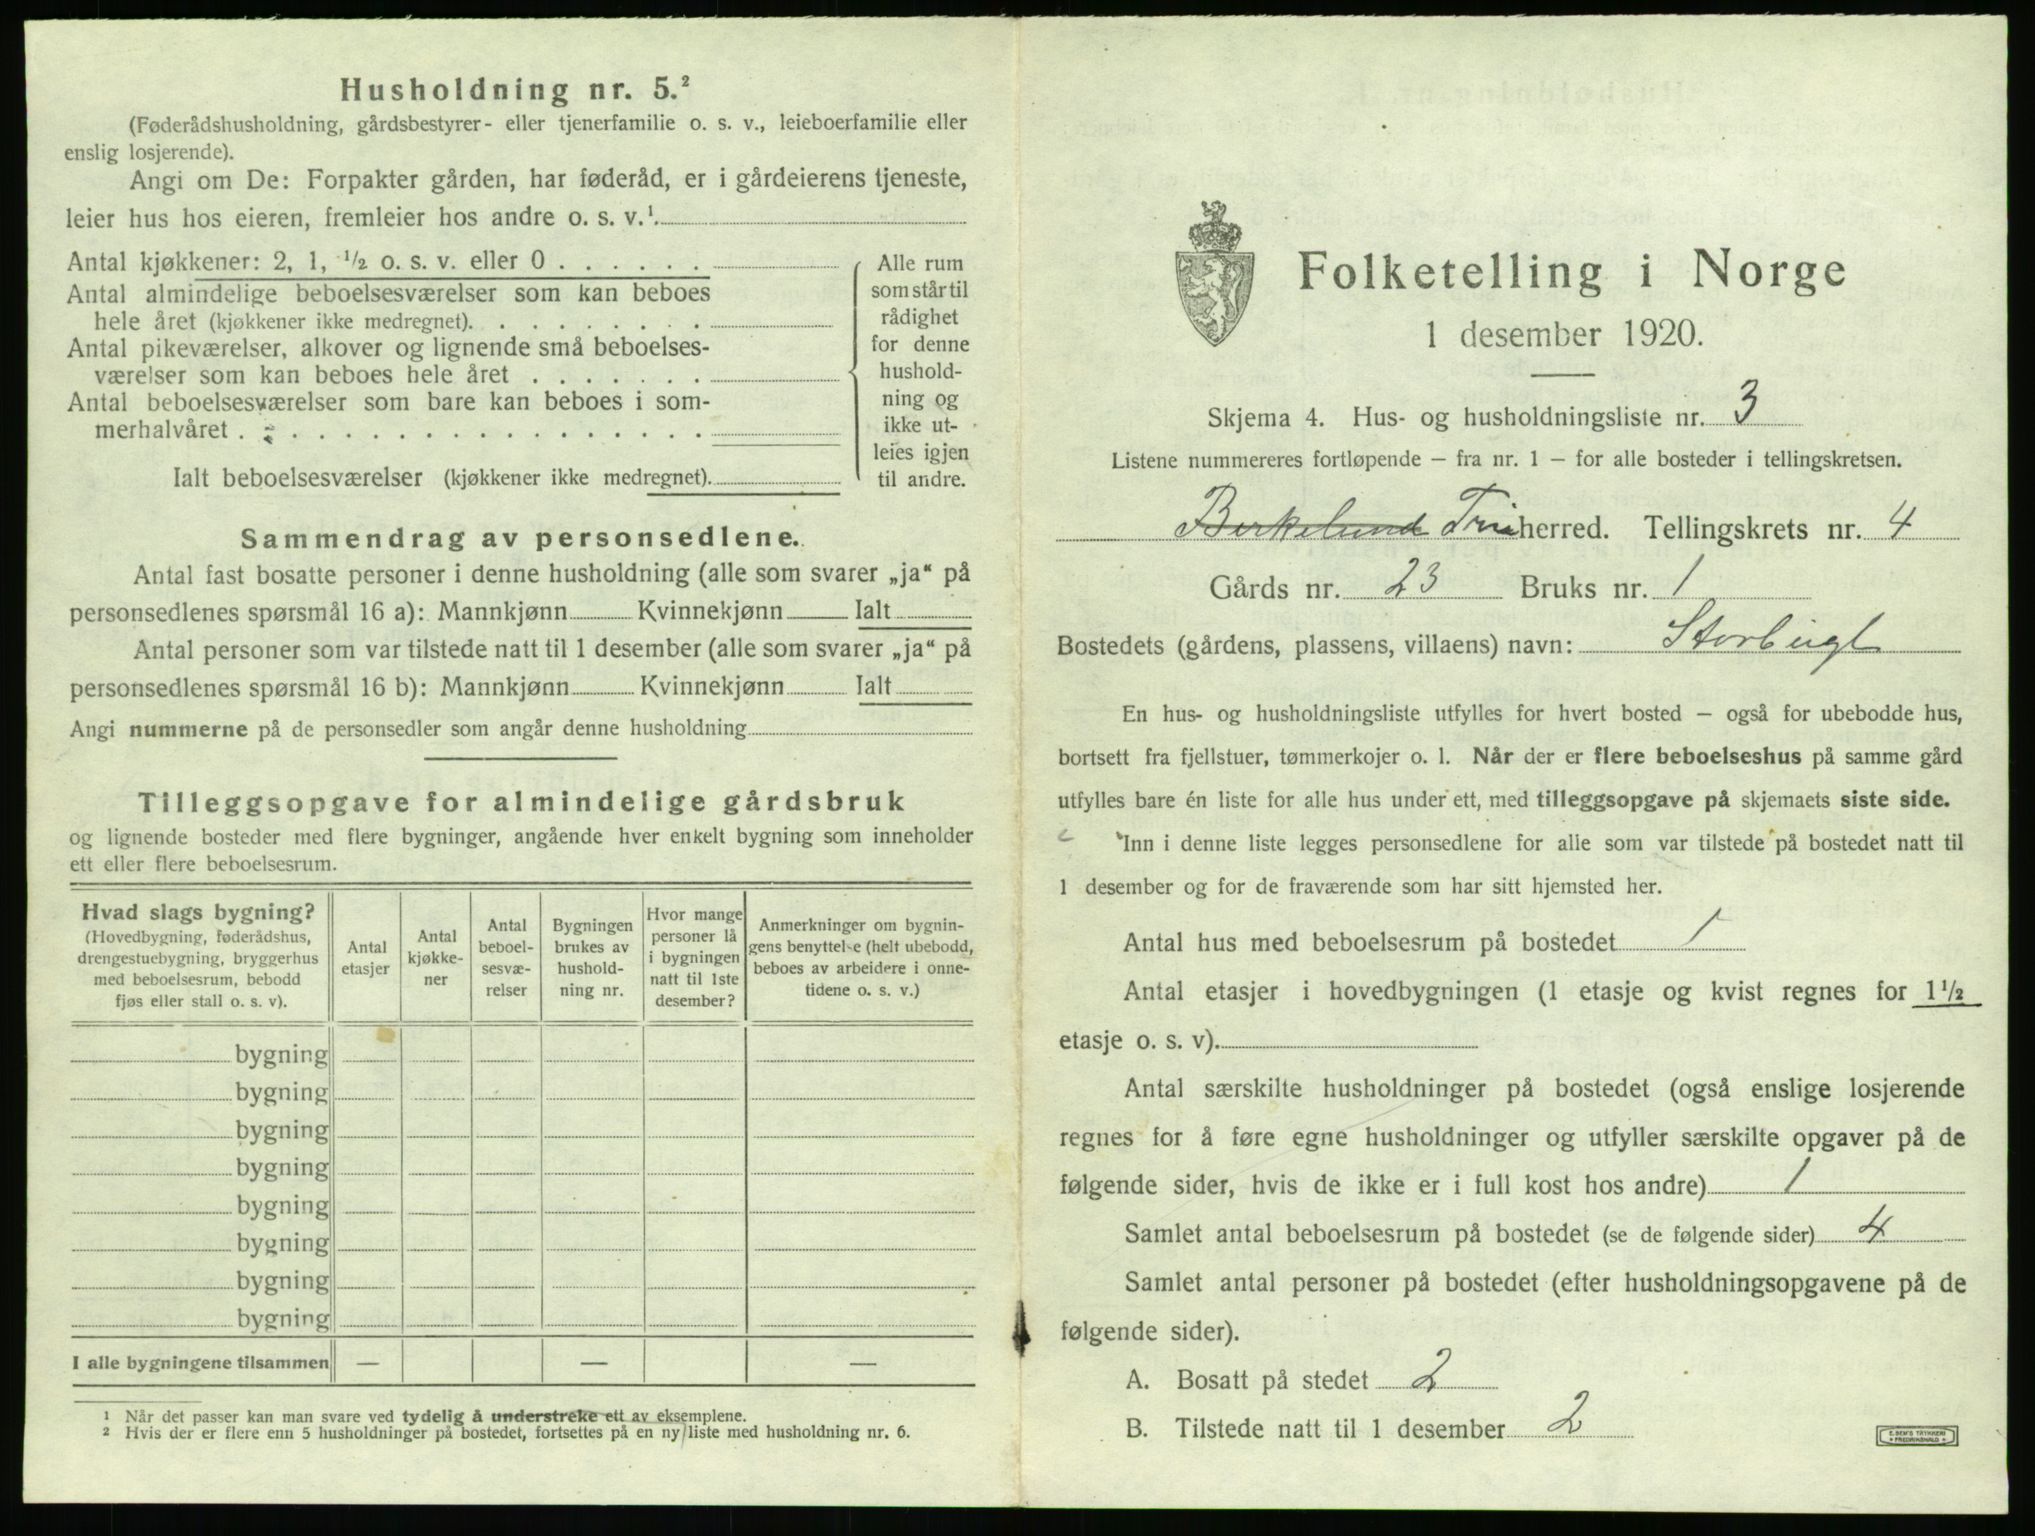 Husholdning nr. 5.²
(Føderådshusholdning, gårdsbestyrer- eller tjenerfamilie o. s. v., leieboerfamilie eller
enslig losjerende).
Angi om De: Forpakter gården, har føderåd, er i gårdeierens tjeneste,
leier hus hos eieren, fremleier hos andre o. s. v.¹.
Antal kjøkkener: 2, 1, ½ o. s. v. eller 0 . . . . . .
Antal almindelige beboelsesværelser som kan beboes
hele året (kjøkkener ikke medregnet). . . . . . . . .
Antal pikeværelser, alkover og lignende små beboelses-
værelser som kan beboes hele året . . . . . . .
Antal beboelsesværelser som bare kan beboes i som-
merhalvåret . . . . . . . . . . . . . . . . . .
Ialt beboelsesværelser (kjøkkener ikke medregnet).
Alle rum
som står til
rådighet
for denne
hushold-
ning og
ikke ut-
leies igjen
til andre.
Sammendrag av personsedlene.
Antal fast bosatte personer i denne husholdning (alle som svarer „ja“ på
personsedlenes spørsmål 16 a): Mannkjønn Kvinnekjønn Ialt
Antal personer som var tilstede natt til 1 desember (alle som svarer „ja“ på
personsedlenes spørsmål 16 b): Mannkjønn Kvinnekjønn Ialt
Angi nummerne på de personsedler som angår denne husholdning
Tilleggsopgave for almindelige gårdsbruk
og lignende bosteder med flere bygninger, angående hver enkelt bygning som inneholder
ett eller flere beboelsesrum.
Hvad slags bygning?
(Hovedbygning, føderådshus,
drengestuebygning, bryggerhus
med beboelsesrum, bebodd
fjøs eller stall o. s. v).
Antal
etasjer
Antal
kjøkke-
ner
Antal
beboel-
sesvæ-
relser
Bygningen
brukes av
hushold-
ning nr.
Hvor mange
personer lå
i bygningen
natt til 1ste
desember?
Anmerkninger om bygnin-
gens benyttelse (helt ubebodd,
beboes av arbeidere i onne-
tidene o. s. v.)
bygning
bygning
bygning
bygning
bygning
bygning
bygning
bygning
I alle bygningene tilsammen — — —
¹ Når det passer kan man svare ved tydelig å understreke ett av eksemplene.
² Hvis der er flere enn 5 husholdninger på bostedet, fortsettes på en ny liste med husholdning nr. 6.
Folketelling i Norge
1 desember 1920.
Skjema 4. Hus- og husholdningsliste nr. 3
Listene nummereres fortløpende – fra nr. 1 – for alle bosteder i tellingskretsen.
Birkelund herred. Tellingskrets nr. 4
Gårds nr. 23 Bruks nr. 1
Bostedets (gårdens, plassens, villaens) navn:
En hus- og husholdningsliste utfylles for hvert bosted – også for ubebodde hus,
bortsett fra fjellstuer, tømmerkojer o. l. Når der er flere beboelseshus på samme gård
utfylles bare én liste for alle hus under ett, med tilleggsopgave på skjemaets siste side.
Inn i denne liste legges personsedlene for alle som var tilstede på bostedet natt til
1 desember og for de fraværende som har sitt hjemsted her.
Antal hus med beboelsesrum på bostedet 1
Antal etasjer i hovedbygningen (1 etasje og kvist regnes for 1½
etasje o. s. v).
Antal særskilte husholdninger på bostedet (også enslige losjerende
regnes for å føre egne husholdninger og utfyller særskilte opgaver på de
følgende sider, hvis de ikke er i full kost hos andre) 1
Samlet antal beboelsesrum på bostedet (se de følgende sider) 4
Samlet antal personer på bostedet (efter husholdningsopgavene på de
følgende sider).
A. Bosatt på stedet 2
B. Tilstede natt til 1 desember 2
E. SEM'S TRYKKERI
FREDRIKSHALD